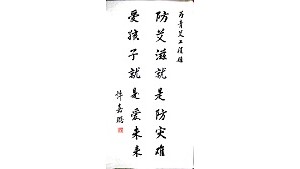 为青艾工程
防艾滋就是防灾难
爱孩子就是爱未来
许嘉璐